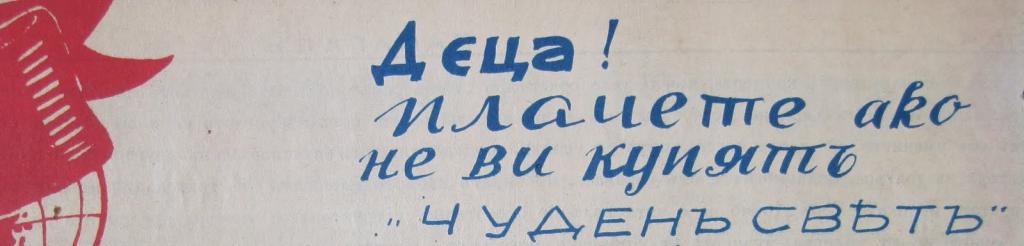 Деца!
плачете ако
не ви купятъ
„ЧУДЕНЪ СВѢТЪ"